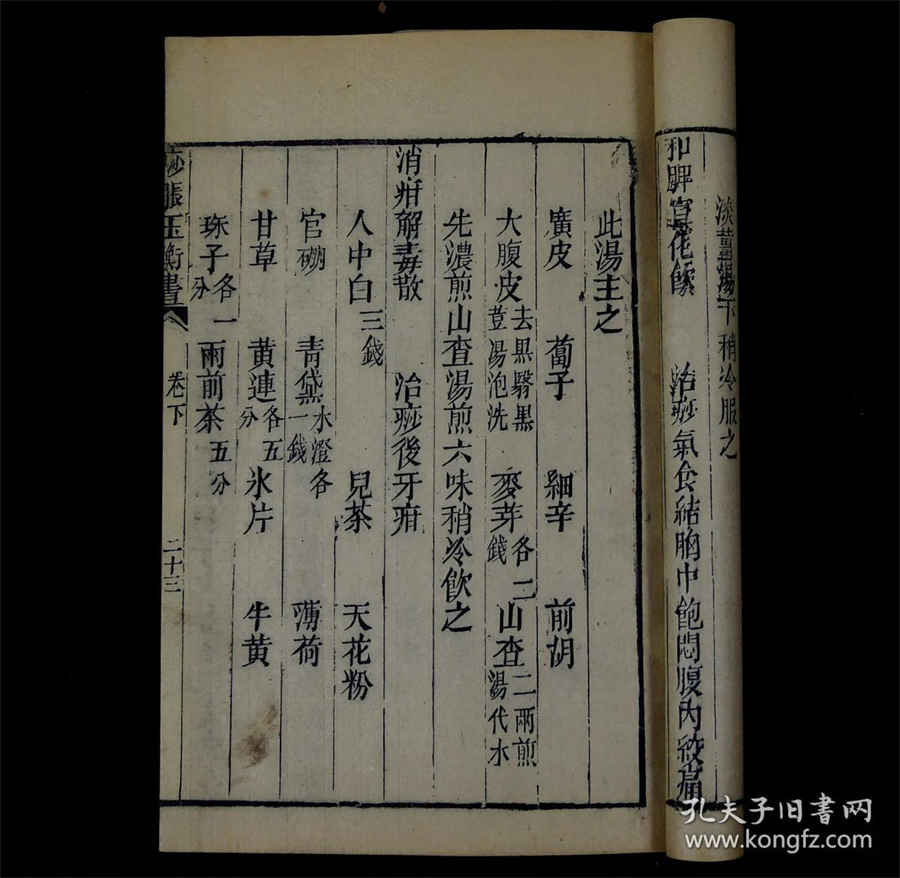 淡薑湯下稍冷服之
和脾宣化飲 治痧氣食結胸中飽悶腹內絞痛
此湯主之
廣皮 蔔子 細辛 前胡
大腹皮去黑翳黑荳湯泡洗 麥芽各二錢 山查二兩煎湯代水
先濃煎山查湯煎六味稍冷飲之
消疳解毒散 治痧後牙疳
人中白三錢 兒茶 天花粉
官硼 青黛水澄各一錢 薄荷
甘草 黃連各五分 氷片 牛黃
珠子各一分 雨前茶五分
痧脹玉衡書 卷下 二十三
孔夫子旧書网
www.kongfz.com